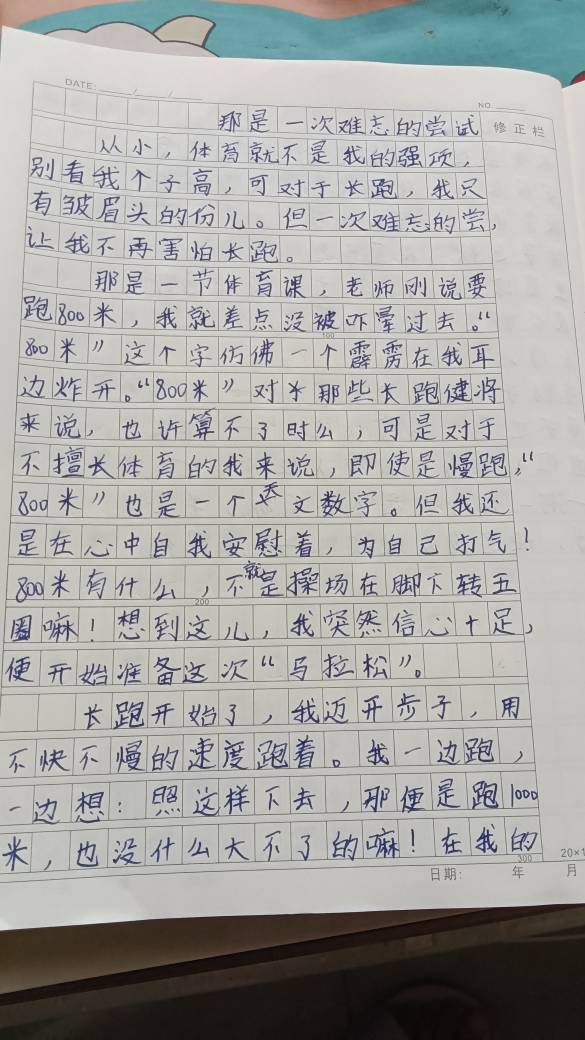 DATE: / /
NO.
那是一次难忘的尝试
修正栏
从小，体育就不是我的强项，
别看我个子高，可对于长跑，我只
有皱眉头的份儿。但一次难忘的尝，
让我不再害怕长跑。
那是一节体育课，老师刚说要
跑800米，我就差点没被吓晕过去。“
100
800米”这个字仿佛一个霹雳在我耳
边炸开。“800米”对于那些长跑健将
来说，也许算不了时么，可是对于
不擅长体育的我来说，即使是慢跑，“
800米”也是一个天文数字。但我还
是在心中自我安慰着，为自己打气！
800米有什么，不就是操场在脚下转五
200
圈嘛！想到这儿，我突然信心十足，
便开始准备这次“马拉松”。
长跑开始了，我迈开步子，用
不快不慢的速度跑着。我一边跑，
一边想：照这样下去，那便是跑1000
米，也没什么大不了的嘛！在我的
300
20×1
日期： 年 月